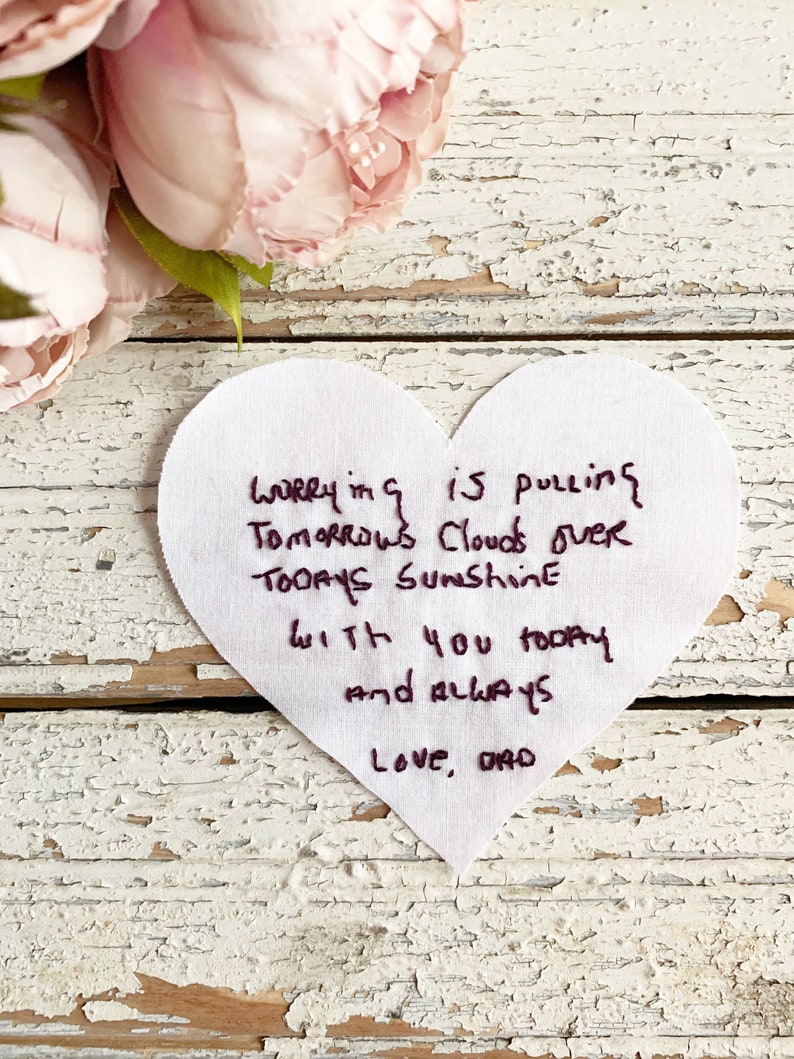 WORRYinG iS PULLinG
TOMORROWS Clouds OVER
TODAYS SUNShinE
WITh YOU TODAY
And ALWAYS
LOVE, DAD